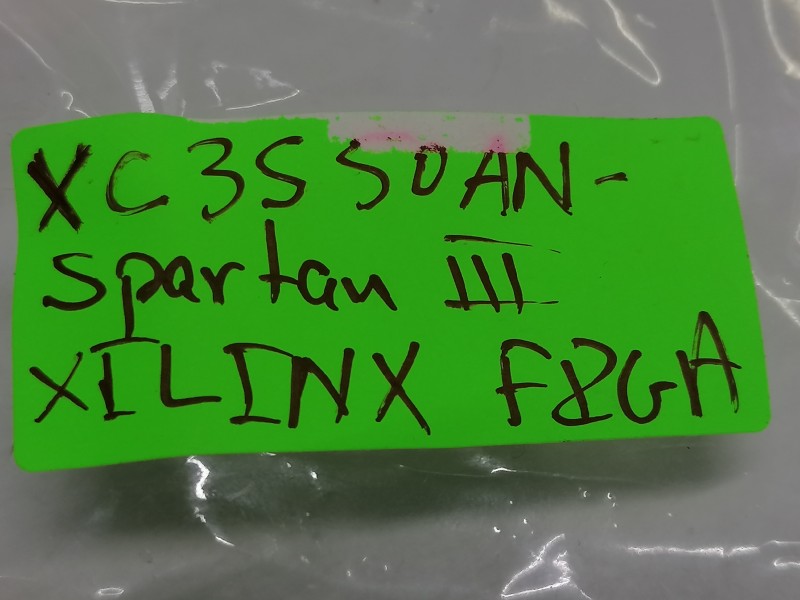 XC3S50AN-
Spartan III
XILINX FPGA